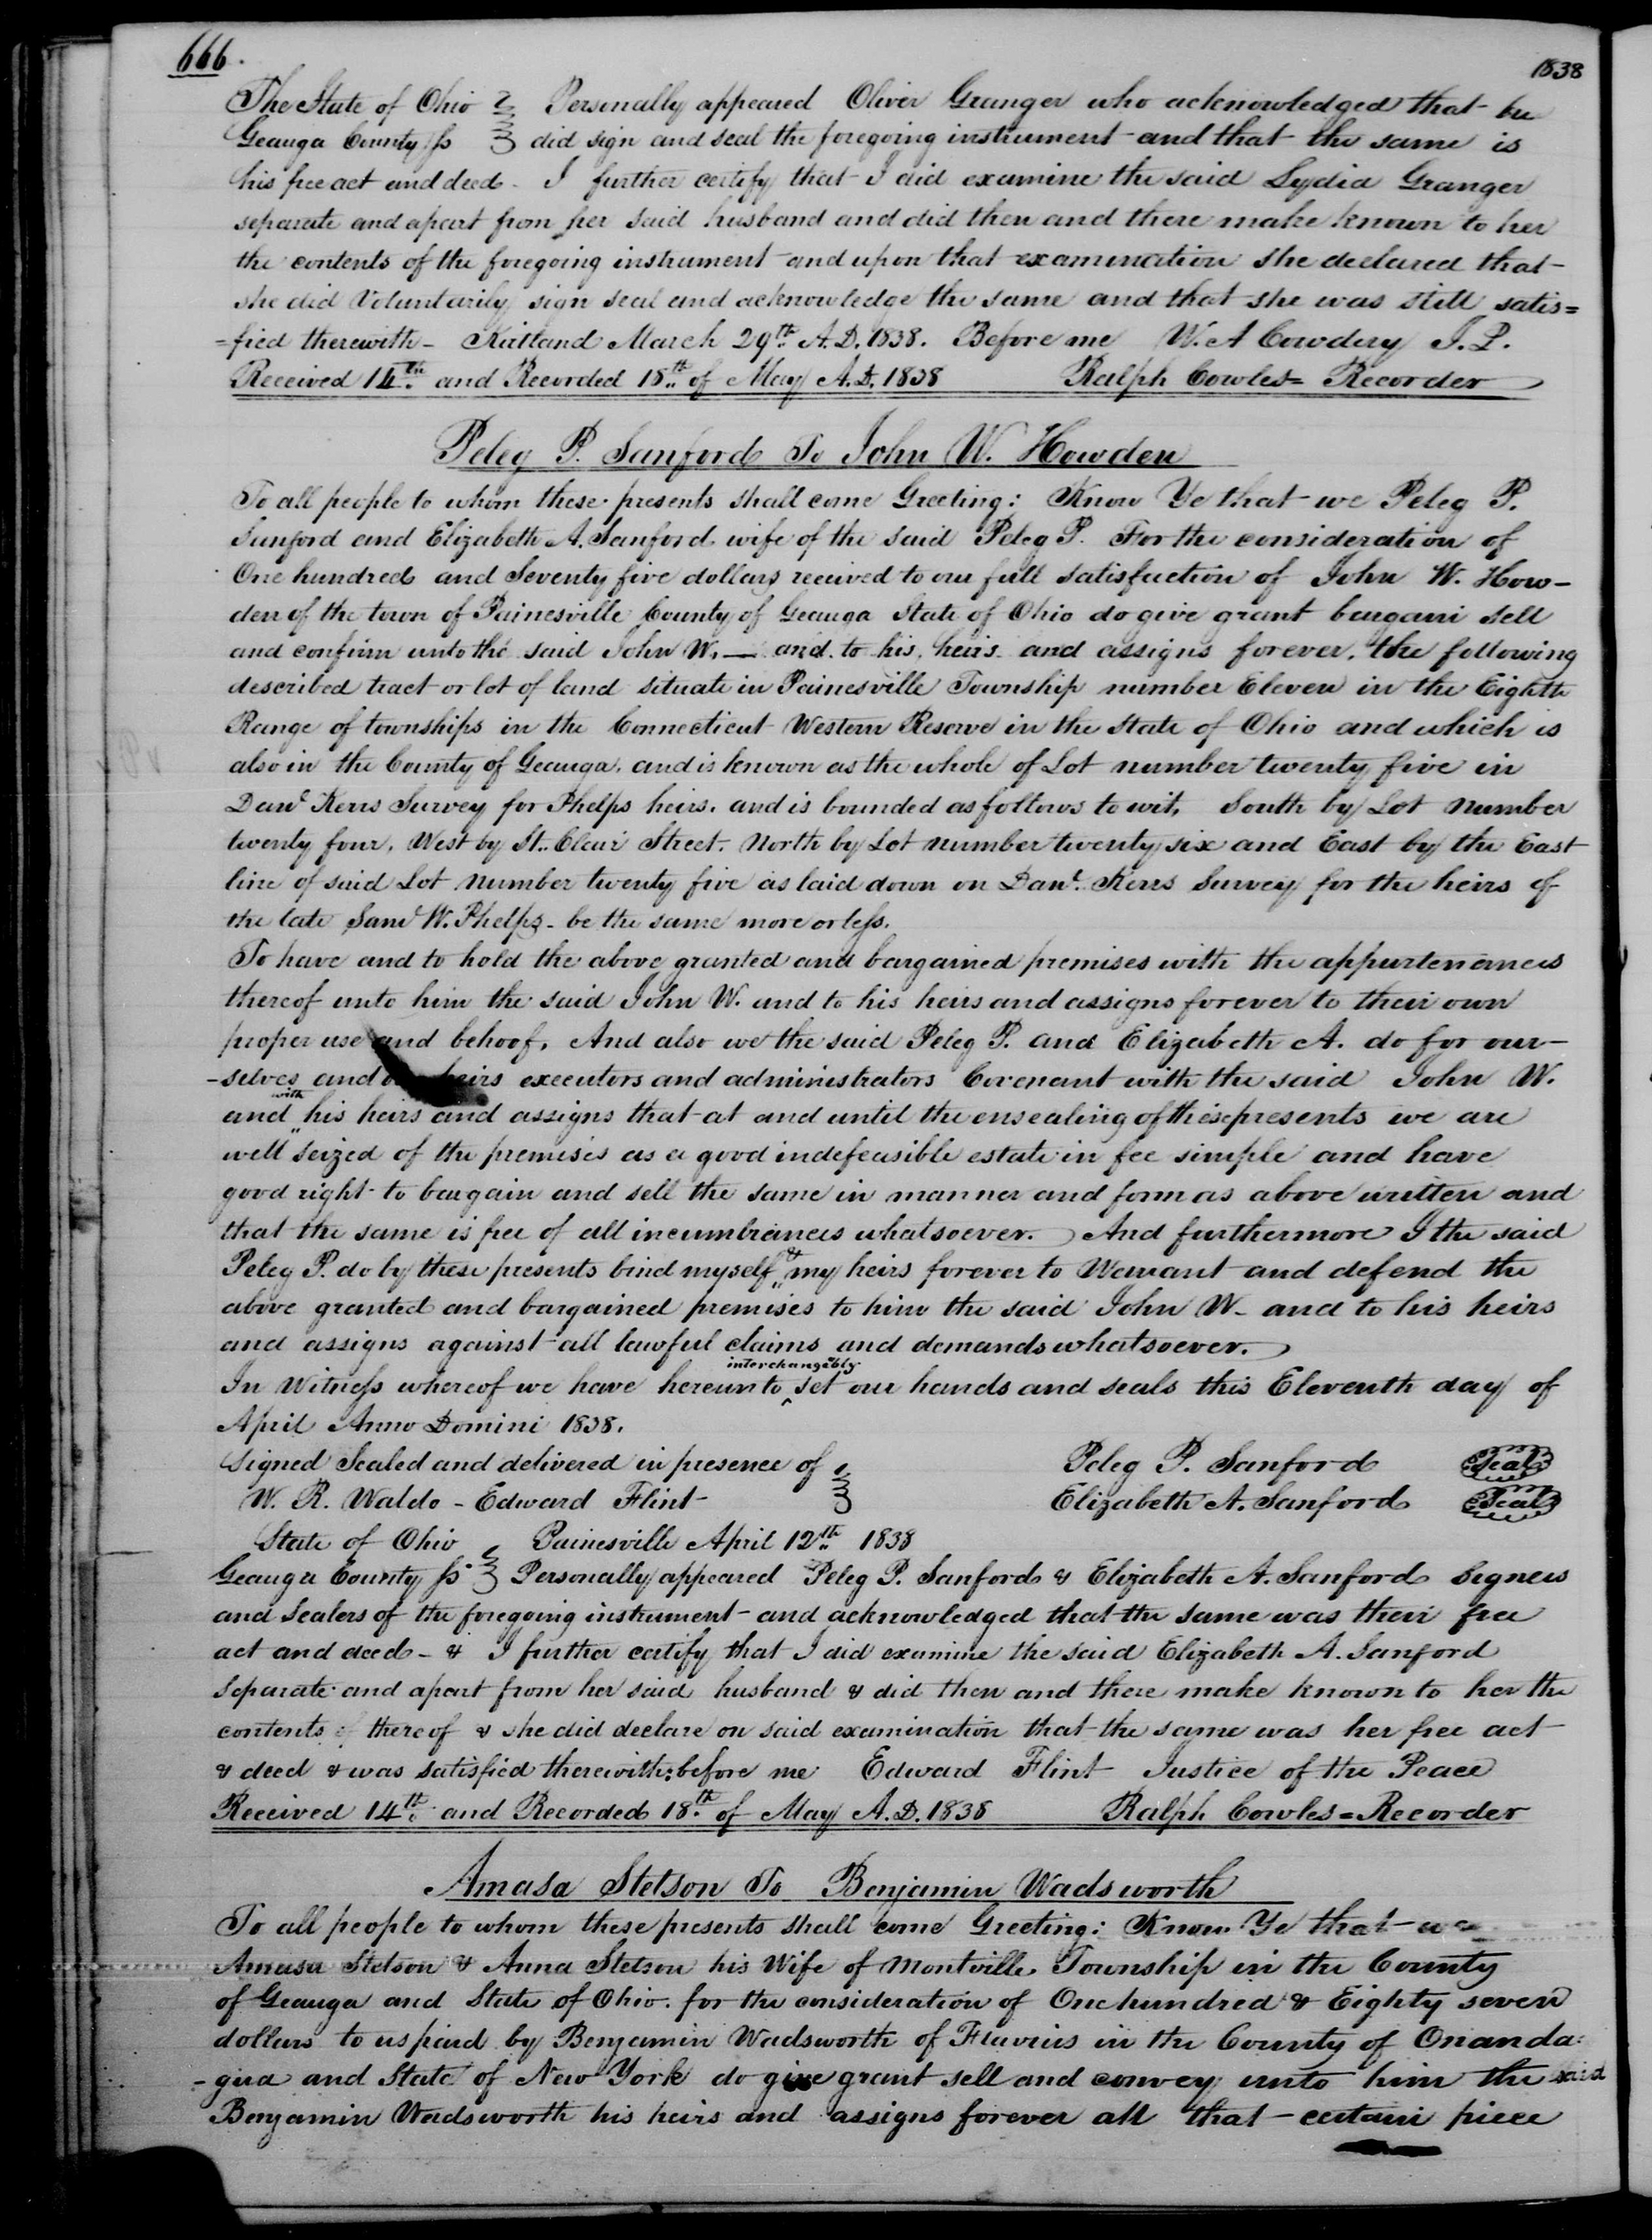 666.
1838
The State of Ohio } Personally appeared Oliver Granger who acknowledged that he
Geauga County ss } did sign and seal the foregoing instrument and that the same is
his free act and deed - I further certify that I did examine the said Lydia Granger
separate and apart from her said husband and did then and there make known to her
the contents of the foregoing instrument and upon that examination she declared that
she did Voluntarily sign seal and acknowledge the same and that she was still satis=
=fied therewith - Kirtland March 29th A.D. 1838. Before me W. A Cowdery J.P.
Received 14th and Recorded 18th of May A.D. 1838 Ralph Cowles = Recorder
Peleg P. Sanford To John W. Howden
To all people to whom these presents shall come Greeting: Know Ye that we Peleg P.
Sanford and Elizabeth A. Sanford wife of the said Peleg P. For the consideration of
One hundred and Seventy five dollars received to our full satisfaction of John W. How-
den of the town of Painesville County of Geauga State of Ohio do give grant bargain sell
and confirm unto the said John W. — and to his heirs and assigns forever. the following
described tract or lot of land situate in Painesville Township number Eleven in the Eighth
Range of townships in the Connecticut Western Reserve in the State of Ohio and which is
also in the County of Geauga. and is known as the whole of Lot number twenty five in
Danl Kerrs Survey for Phelps heirs. and is bounded as follows to wit, South by Lot number
twenty four, West by St. Clair Street. North by Lot number twenty six and East by the East
line of said Lot number twenty five as laid down on Danl. Kerrs Survey for the heirs of
the late Saml W. Phelps - be the same more or less.
To have and to hold the above granted and bargained premises with the appurtenances
thereof unto him the said John W. and to his heirs and assigns forever to their own
proper use and behoof, And also we the said Peleg P. and Elizabeth A. do for our-
-selves and heirs executors and administrators Covenant with the said John W.
and with his heirs and assigns that at and until the ensealing of these presents we are
well seized of the premises as a good indefeasible estate in fee simple and have
good right to bargain and sell the same in manner and form as above written and
that the same is free of all incumbrances whatsoever. And furthermore I the said
Peleg P. do by these presents bind myself & my heirs forever to Warrant and defend the
above granted and bargained premises to him the said John W. and to his heirs
and assigns against all lawful claims and demands whatsoever.
In Witness whereof we have hereunto interchangebly set our hands and seals this Eleventh day of
April Anno Domini 1838.
Signed Sealed and delivered in presence of } Peleg P. Sanford Seal
W. R. Waldo - Edward Flint } Elizabeth A. Sanford Seal
State of Ohio } Painesville April 12th 1838
Geauga County ss } Personally appeared Peleg P. Sanford & Elizabeth A. Sanford Signers
and Sealers of the foregoing instrument and acknowledged that the same was their free
act and deed - & I further certify that I did examine the said Elizabeth A. Sanford
Separate and apart from her said husband & did then and there make known to her the
contents of thereof & she did declare on said examination that the same was her free act
& deed & was satisfied therewith; before me Edward Flint Justice of the Peace
Received 14th and Recorded 18th of May A.D. 1838 Ralph Cowles = Recorder
Amasa Stetson To Benjamin Wadsworth
To all people to whom these presents shall come Greeting: Know Ye that we
Amasa Stetson & Anna Stetson his Wife of Montville Township in the County
of Geauga and State of Ohio. for the consideration of One hundred & Eighty seven
dollars to us paid by Benjamin Wadsworth of Flavius in the County of Onanda=
-gua and State of New York do give grant sell and convey unto him the said
Benjamin Wadsworth his heirs and assigns forever all that certain piece